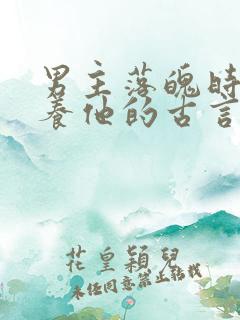 男主落魄時
養他的古言
花皇穎兒
未經同意禁止轉載